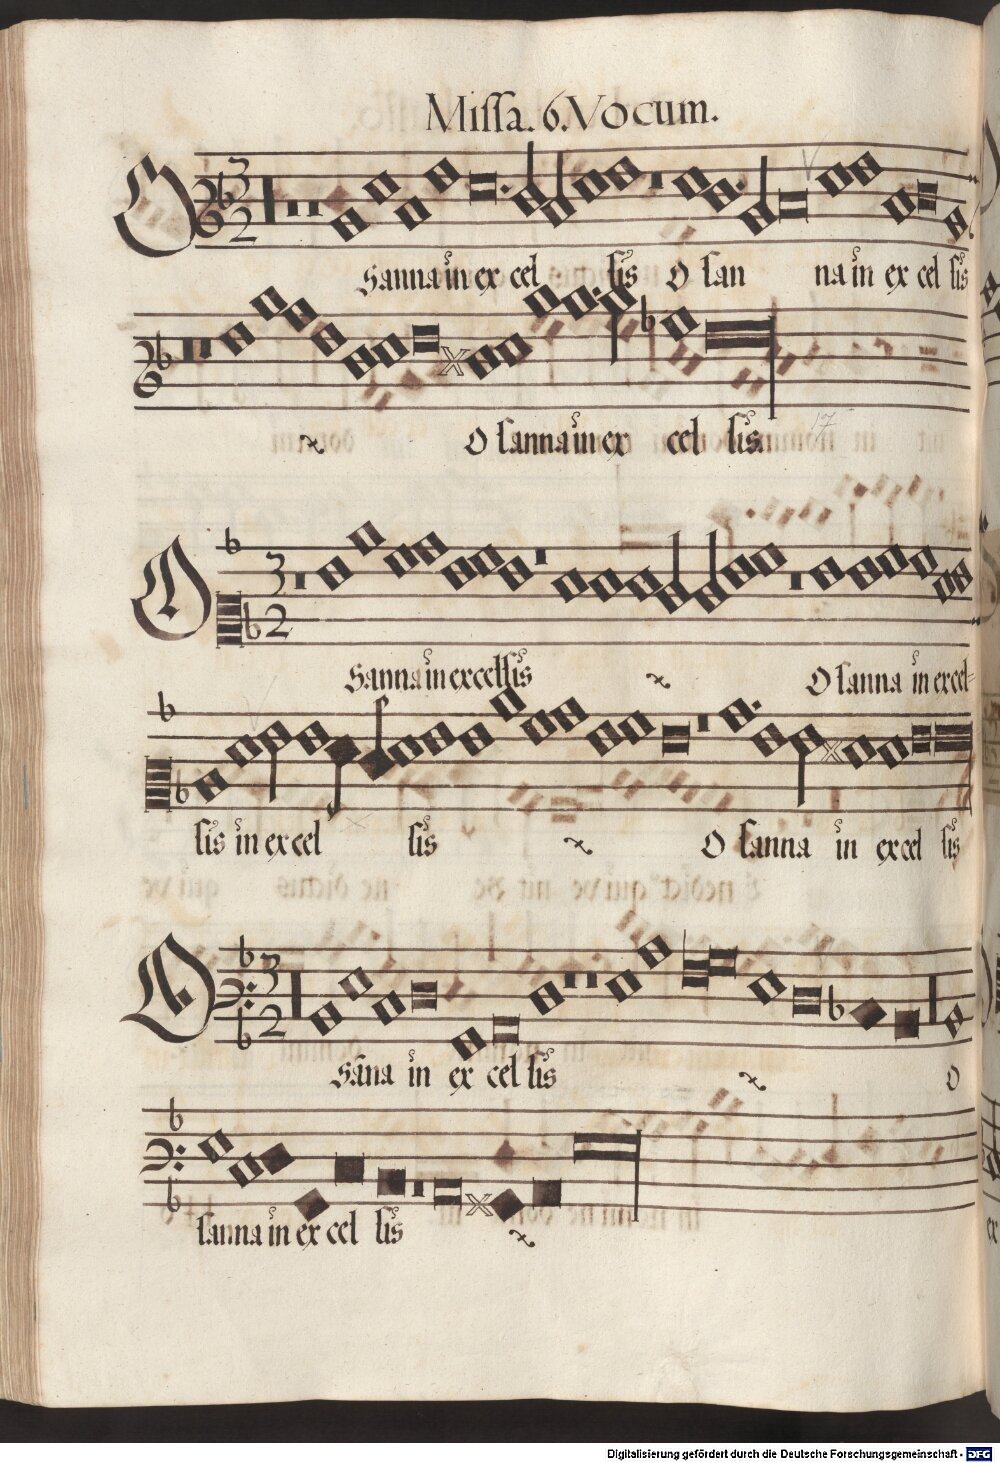 Missa. 6. Vocum.
O
3
2
Sanna in ex cel sis O san na in ex cel sis
O sanna in ex cel sis
17
O
3
2
Sanna in excelsis O sanna in excel-
sis in ex cel sis O sanna in excel sis
O
3
2
Sāna in ex cel sis O
sanna in ex cel sis
Digitalisierung gefördert durch die Deutsche Forschungsgemeinschaft - DFG